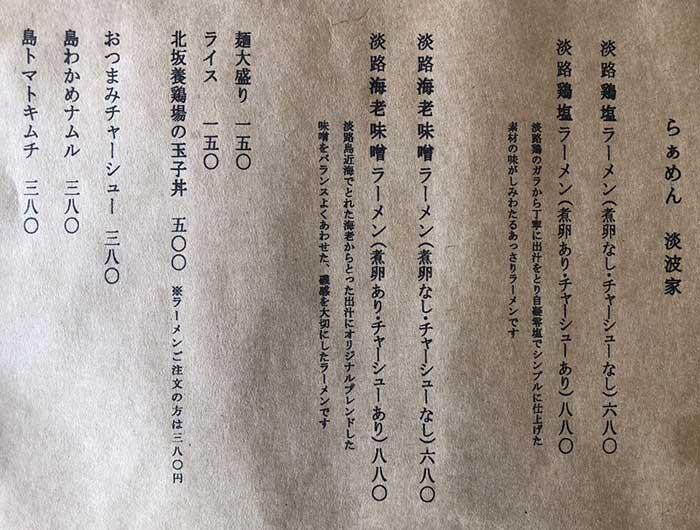 らぁめん　淡波家
淡路鶏塩ラーメン(煮卵なし・チャーシューなし)六八〇
淡路鶏塩ラーメン(煮卵あり・チャーシューあり)八八〇
淡路鶏のガラから丁寧に出汁をとり自凝雫塩でシンプルに仕上げた
素材の味がしみわたるあっさりラーメンです
淡路海老味噌ラーメン(煮卵なし・チャーシューなし)六八〇
淡路海老味噌ラーメン(煮卵あり・チャーシューあり)八八〇
淡路島近海でとれた海老からとった出汁にオリジナルブレンドした
味噌をバランスよくあわせた、磯感を大切にしたラーメンです
麺大盛り　一五〇
ライス　一五〇
北坂養鶏場の玉子丼　五〇〇　※ラーメンご注文の方は三八〇円
おつまみチャーシュー　三八〇
島わかめナムル　三八〇
島トマトキムチ　三八〇